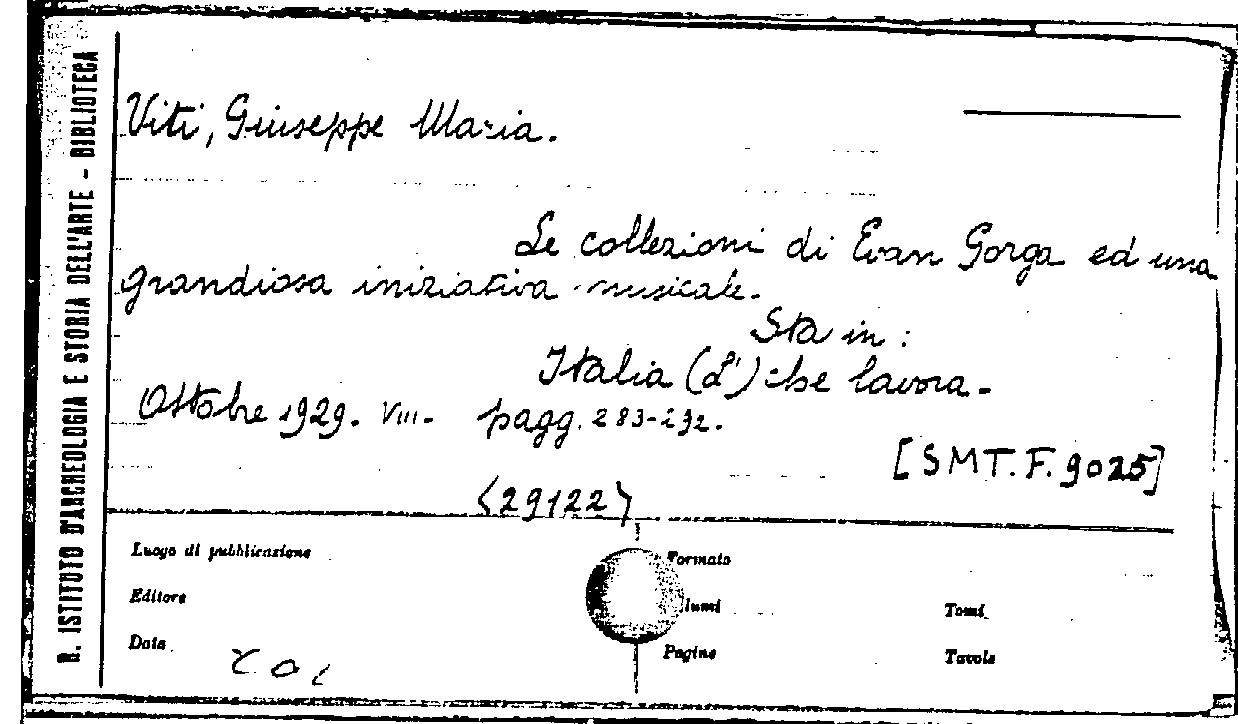 R. ISTITUTO D'ARCHEOLOGIA E STORIA DELL'ARTE - BIBLIOTECA
Viti, Giuseppe Maria.
Le collezioni di Evan Gorga ed una
grandiosa iniziativa musicale.
Sta in:
Italia (L') che lavora.
Ottobre 1929. VIII. pagg. 283-292.
[SMT. F. 9025]
(29122)
Luogo di pubblicazione
Formato
Editore
lumi
Tomi
Data
Pagine
Tavole